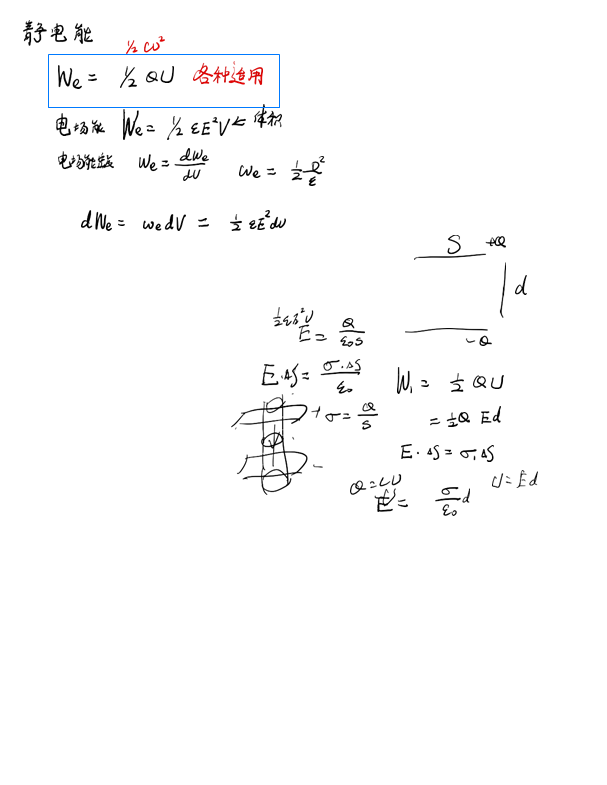 静电能
½ CU²
We = ½ QU 各种适用
电场能 We = ½ εE²V ← 体积
电场能密度 we = dWe/dV we = ½ D²/ε
dWe = we dV = ½ εE²dV
S +Q
d
-Q
½εE²V
E = Q/ε₀S
E·ΔS = σ·ΔS/ε₀
+ σ = Q/S
-
W₁ = ½ QU
= ½Q Ed
E·ΔS = σ.ΔS
Q = CU U = Ed
E = σ/ε₀ d